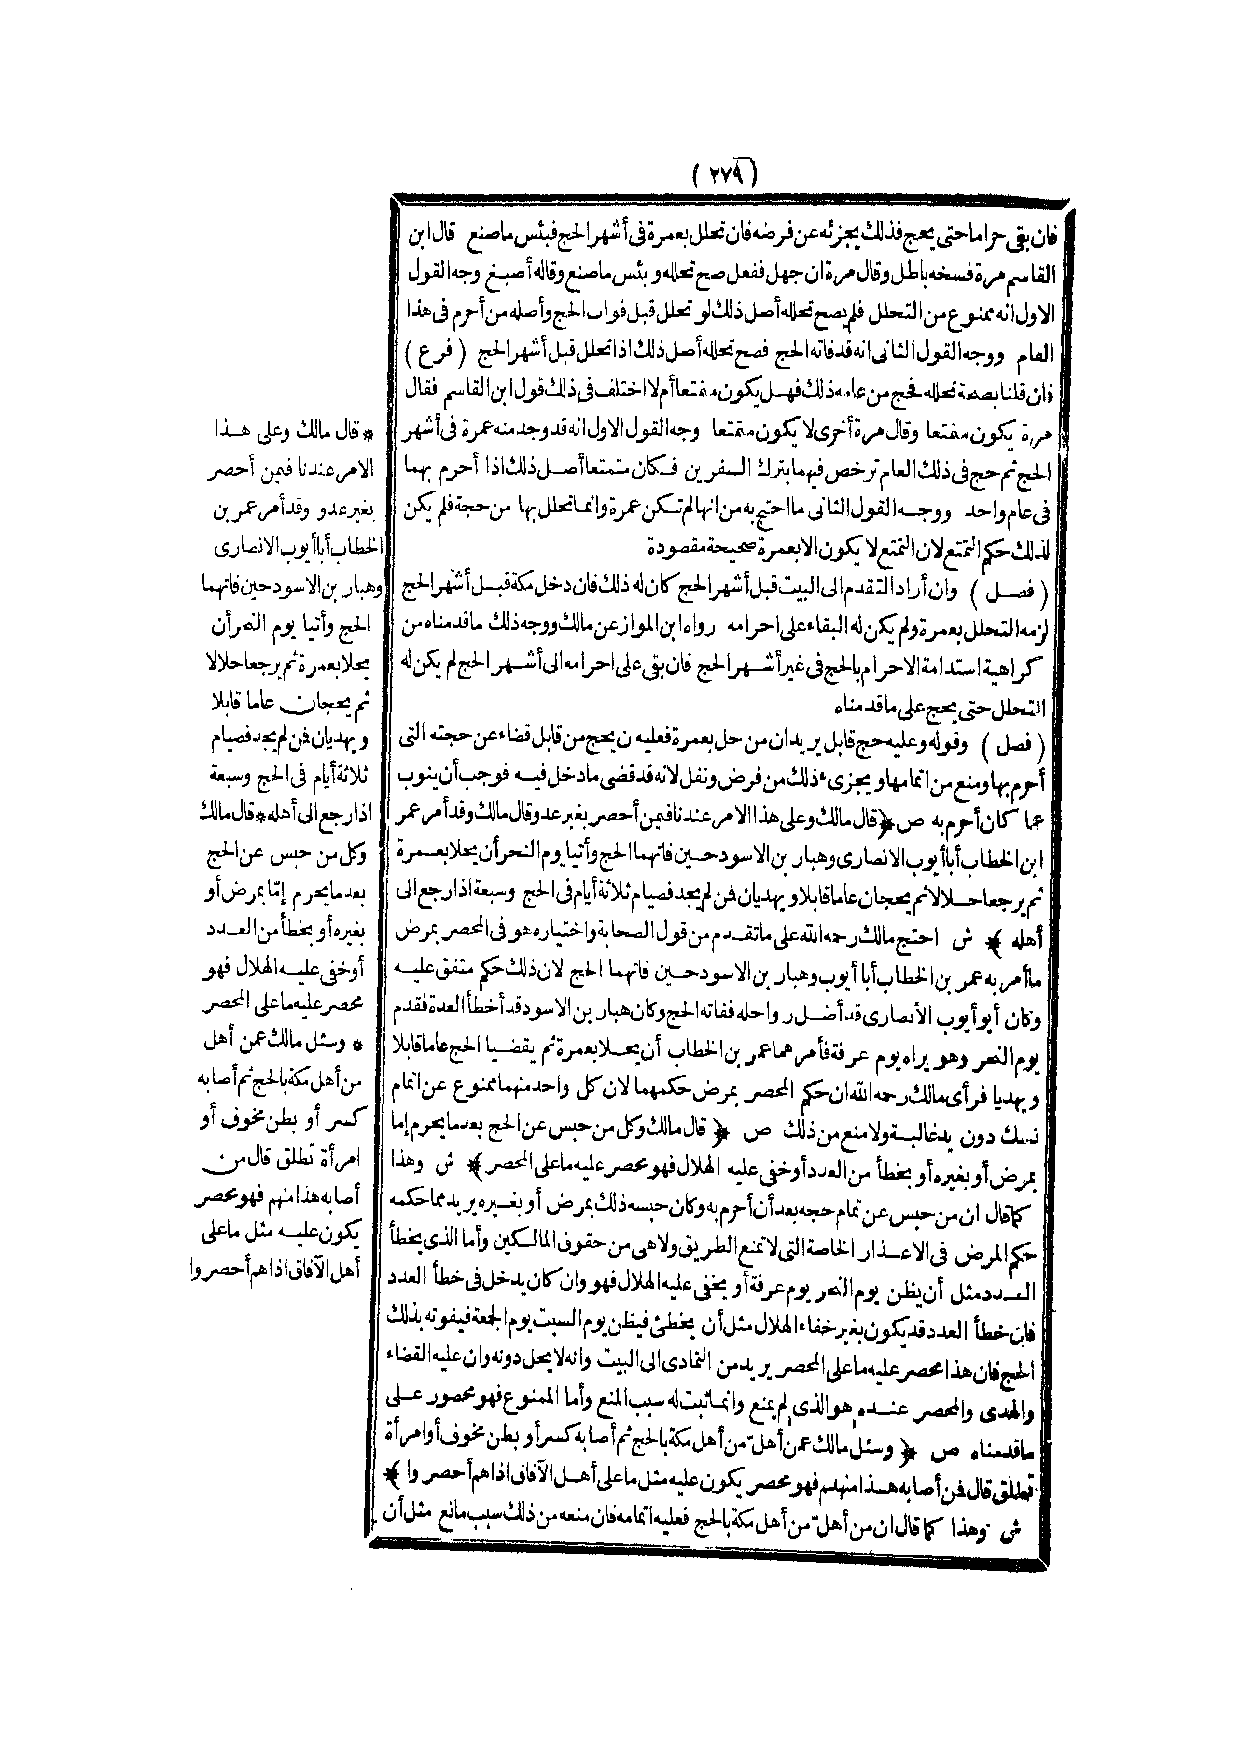 (٢٧٩)
فان بقى حراما حتى يحج فذلك يجزئه عن فرضه فان تحلل بعمرة فى أشهر الحج فبئس ما صنع قال ابن
القاسم مرة فسخه باطل وقال مرة ان جهل ففعل صح تحلله وبئس ما صنع وقاله أصبغ وجه القول
الاول انه ممنوع من التحلل فلم يصح تحلله أصل ذلك لو تحلل قبل فوات الحج وأصله من أحرم فى هذا
العام ووجه القول الثانى انه قد فاته الحج فصح تحلله أصل ذلك اذا تحلل قبل أشهر الحج (فرع)
فان قلنا بصحة تحلله فحج من عامه ذلك فهل يكون متمتعا أم لا اختلف فى ذلك قول ابن القاسم فقال
مرة يكون متمتعا وقال مرة أخرى لا يكون متمتعا وجه القول الاول انه قد وجد منه عمرة فى أشهر
الحج ثم حج فى ذلك العام ترخص فيهما بترك السفرين فكان متمتعا أصل ذلك اذا أحرم بهما
فى عام واحد ووجه القول الثانى ما احتج به من انها لم تكن عمرة وانما تحلل بها من حجة فلم يكن
لذلك حكم التمتع لان التمتع لا يكون الا بعمرة صحيحة مقصودة
(فصل) وان أراد التقدم الى البيت قبل أشهر الحج كان له ذلك فان دخل مكة قبل أشهر الحج
لزمه التحلل بعمرة ولم يكن له البقاء على احرامه رواه ابن المواز عن مالك ووجه ذلك ما قدمناه من
كراهية استدامة الاحرام بالحج فى غير أشهر الحج فان بقى على احرامه الى أشهر الحج لم يكن له
التحلل حتى يحج على ما قدمناه
(فصل) وقوله وعليه حج قابل يريد ان من حل بعمرة فعليه ن يحج من قابل قضاء عن حجته التى
أحرم بها ومنع من اتمامها ويجزىء ذلك من فرض ونفل لانه قد قضى ما دخل فيه فوجب أن ينوب
عما كان أحرم به ص ﴿ قال مالك وعلى هذا الامر عندنا فيمن أحصر بغير عدو قال مالك وقد أمر عمر
ابن الخطاب أبا أيوب الانصارى وهبار بن الاسود حين فاتهما الحج وأتيا يوم النحر أن يحلا بعمرة
ثم يرجعا حلالا ثم يحجان عاما قابلا ويهديان فمن لم يجد فصيام ثلاثة أيام فى الحج وسبعة اذا رجع الى
أهله ﴾ ش احتج مالك رحمه الله على ما تقدم من قول الصحابة واختياره هو فى المحصر بمرض
ما أمر به عمر بن الخطاب أبا أيوب وهبار بن الاسود حين فاتهما الحج لان ذلك حكم متفق عليه
وكان أبو أيوب الأنصارى قد أضل رواحله ففاته الحج وكان هبار بن الاسود قد أخطأ العدة فقدم
يوم النحر وهو يراه يوم عرفة فأمرهما عمر بن الخطاب أن يحلا بعمرة ثم يقضيا الحج عاما قابلا
ويهديا فرأى مالك رحمه الله ان حكم المحصر بمرض حكمهما لان كل واحد منهما ممنوع عن اتمام
نسك دون يد غالبة ولا منع من ذلك ص ﴿ قال مالك وكل من حبس عن الحج بعد ما يحرم إما
بمرض أو بغيره أو بخطأ من العدد أو خفى عليه الهلال فهو محصر عليه ما على المحصر ﴾ ش وهذا
كما قال ان من حبس عن تمام حجه بعد أن أحرم به وكان حبسه ذلك بمرض أو بغيره يريد مما حكمه
حكم المرض فى الاعذار الخاصة التى لا تمنع الطريق ولا هى من حقوق المالكين وأما الذى يخطأ
العدد مثل أن يظن يوم النحر يوم عرفة أو يخفى عليه الهلال فهو وان كان يدخل فى خطأ العدد
فان خطأ العدد قد يكون بغير خفاء الهلال مثل أن يخطئ فيظن يوم السبت يوم الجمعة فيفوته بذلك
الحج فان هذا محصر عليه ما على المحصر يريد من التمادى الى البيت وانه لا يحل دونه وان عليه القضاء
والهدى والمحصر عنده هو الذى لم يمنع وانما ثبت له سبب المنع وأما الممنوع فهو محصور على
ما قدمناه ص ﴿ وسئل مالك عمن أهل من أهل مكة بالحج ثم أصابه كسر أو بطن مخوف أو امرأة
تطلق قال فمن أصابه هذا منهم فهو محصر يكون عليه مثل ما على أهل الآفاق اذا هم أحصروا ﴾
ش وهذا كما قال ان من أهل من أهل مكة بالحج فعليه اتمامه فان منعه من ذلك سبب مانع مثل أن
* قال مالك وعلى هذا
الامر عندنا فيمن أحصر
بغير عدو وقد أمر عمر بن
الخطاب أبا أيوب الانصارى
وهبار بن الاسود حين فاتهما
الحج وأتيا يوم النحر أن
يحلا بعمرة ثم يرجعا حلالا
ثم يحجان عاما قابلا
ويهديان فمن لم يجد فصيام
ثلاثة أيام فى الحج وسبعة
اذا رجع الى أهله * قال مالك
وكل من حبس عن الحج
بعد ما يحرم إمّا بمرض أو
بغيره أو بخطأ من العدد
أو خفى عليه الهلال فهو
محصر عليه ما على المحصر
* وسئل مالك عمن أهل
من أهل مكة بالحج ثم أصابه
كسر أو بطن مخوف أو
امرأة تطلق قال من
أصابه هذا منهم فهو محصر
يكون عليه مثل ما على
أهل الآفاق اذا هم أحصروا